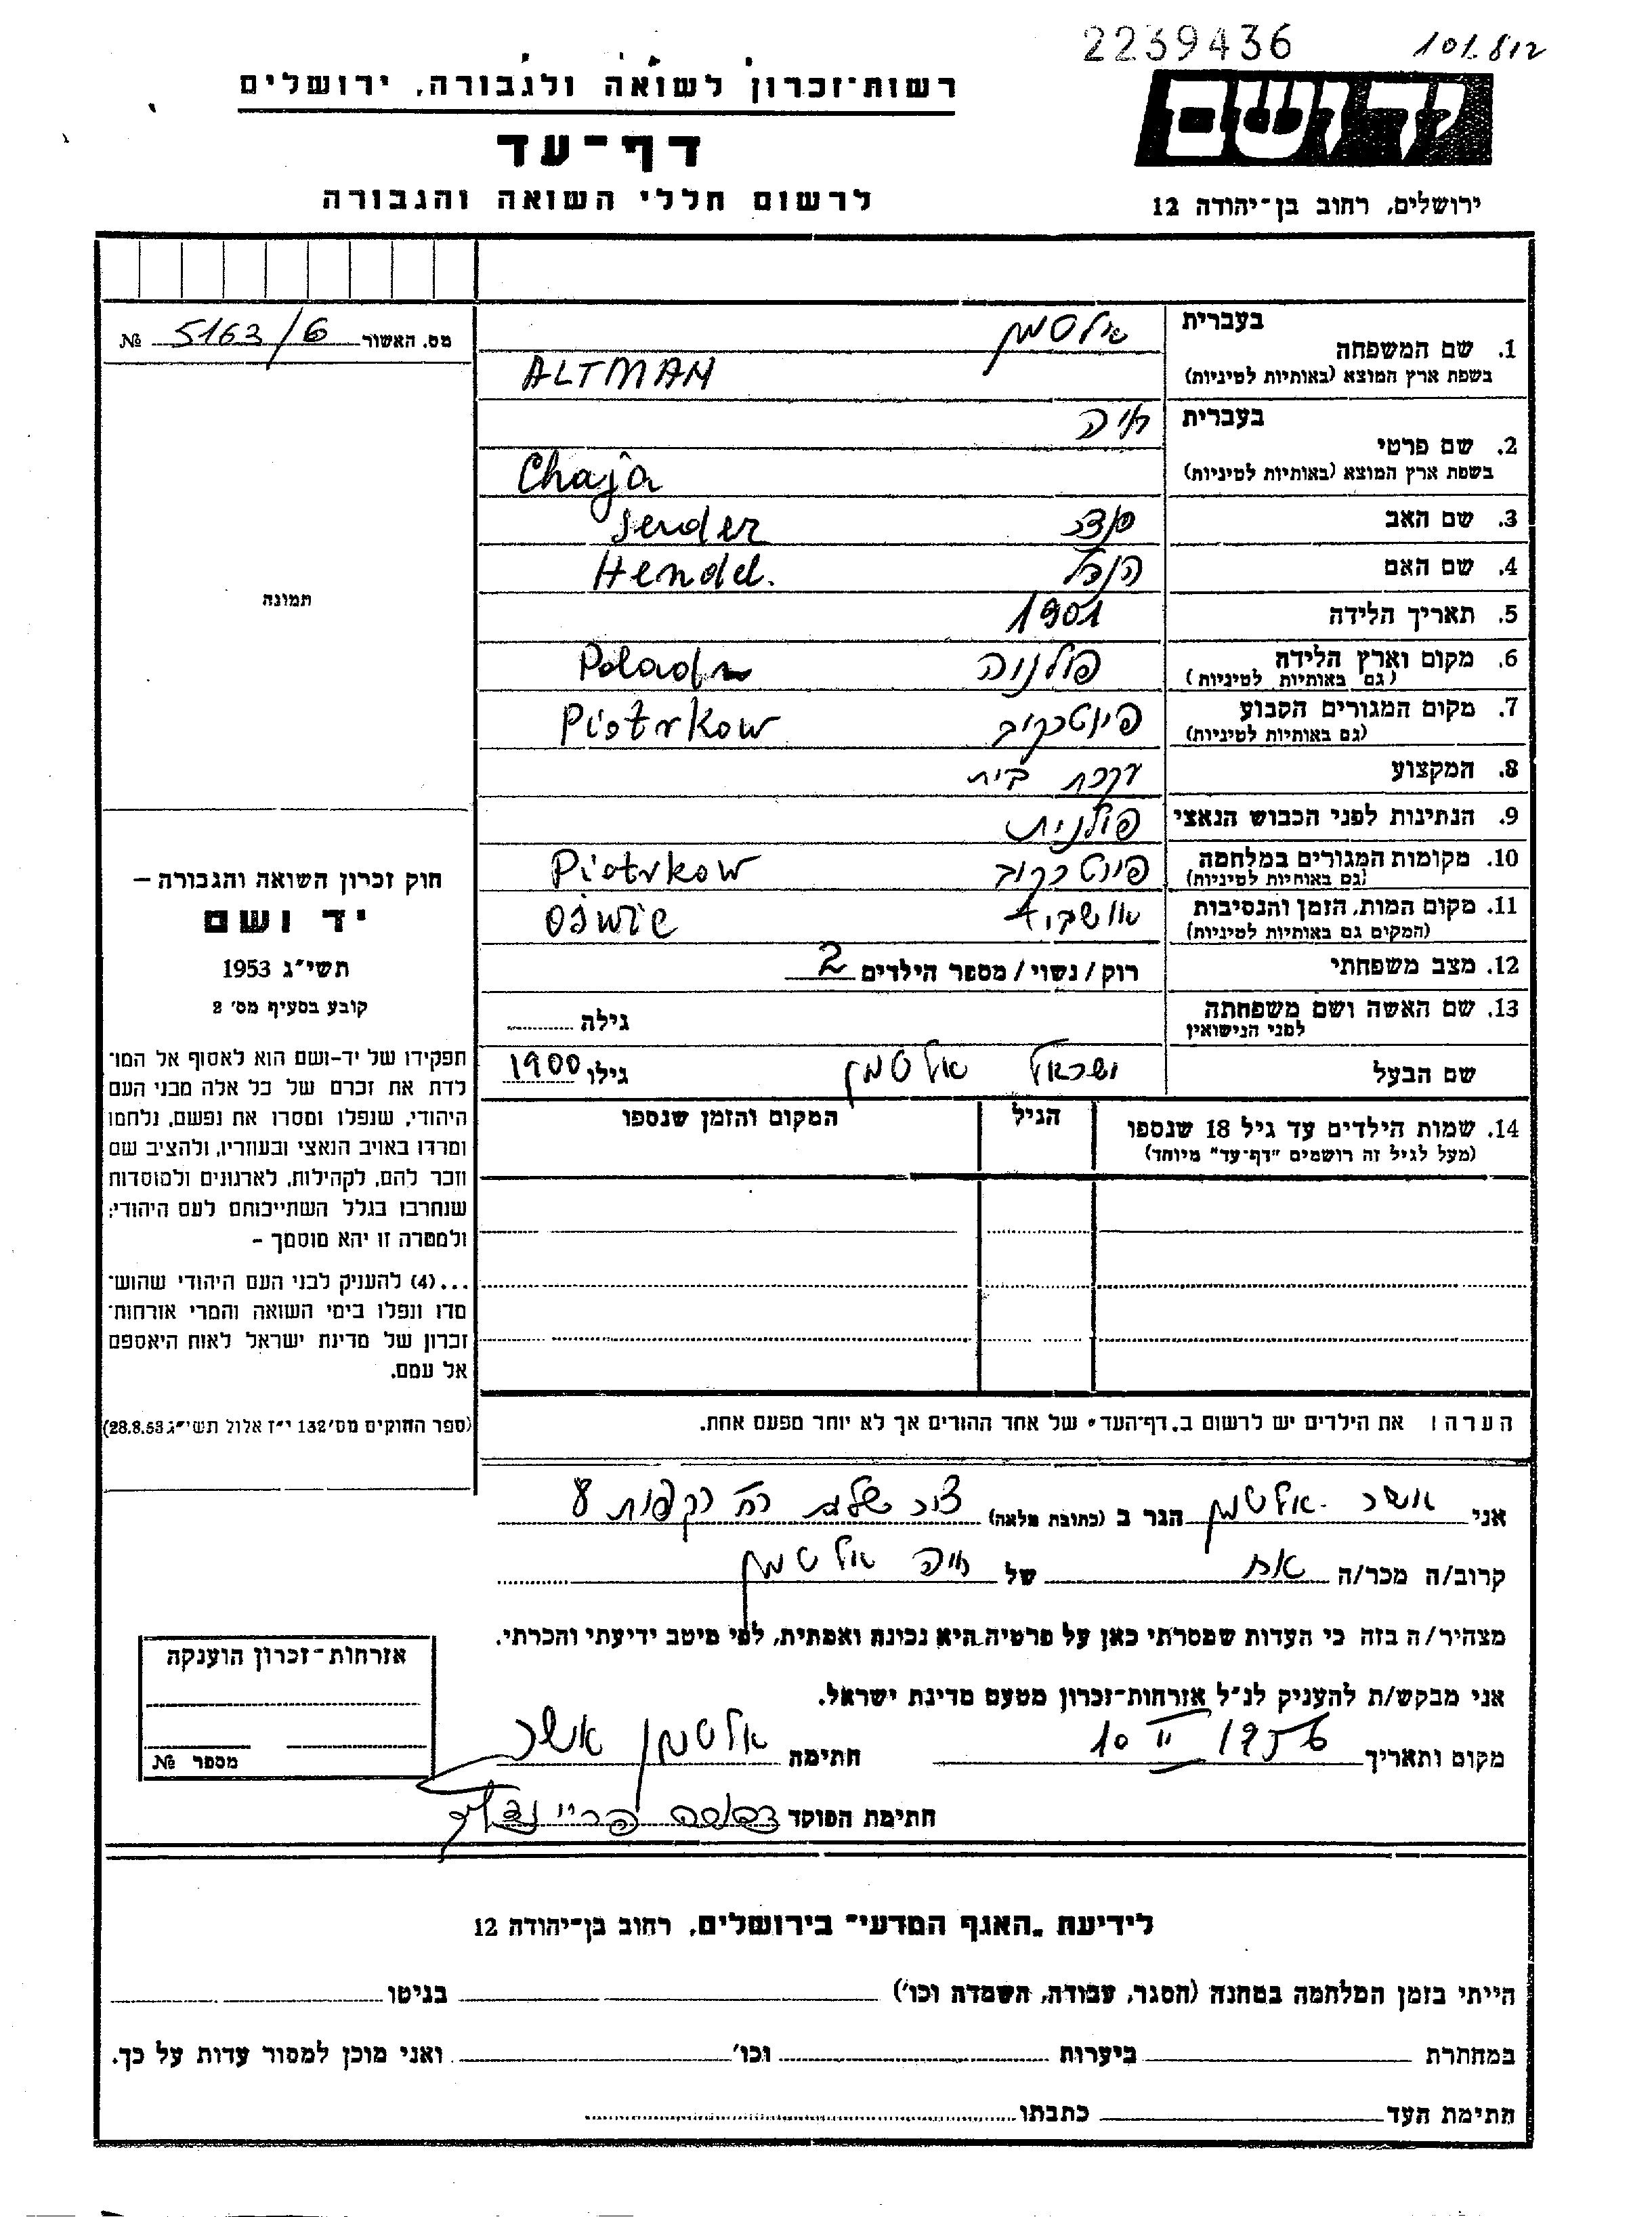 2239436
101.812
רשות־זכרון לשואה ולגבורה, ירושלים
דף־עד
לרשום חללי השואה והגבורה
ידושם
ירושלים, רחוב בן־יהודה 12
מס. האשור 5163/6 №
תמונה
חוק זכרון השואה והגבורה –
יד ושם
תשי"ג 1953
קובע בסעיף מס' 2
תפקידו של יד-ושם הוא לאסוף אל המו־
לדת את זכרם של כל אלה מבני העם
היהודי, שנפלו ומסרו את נפשם, נלחמו
ומרדו באויב הנאצי ובעוזריו, ולהציב שם
וזכר להם, לקהילות, לארגונים ולמוסדות
שנחרבו בגלל השתייכותם לעם היהודי;
ולמטרה זו יהא מוסמך –
...(4) להעניק לבני העם היהודי שהוש־
מדו ונפלו בימי השואה והמרי אזרחות־
זכרון של מדינת ישראל לאות היאספם
אל עמם.
(ספר החוקים מס' 132 י"ז אלול תשי"ג 28.8.53)
בעברית אלטמן
1. שם המשפחה
בשפת ארץ המוצא (באותיות לטיניות) ALTMAN
בעברית חיה
2. שם פרטי
בשפת ארץ המוצא (באותיות לטיניות) Chaja
3. שם האב סנדר Sender
4. שם האם הנדל Hendel.
5. תאריך הלידה 1901
6. מקום וארץ הלידה פולניה
(גם באותיות לטיניות)
7. מקום המגורים הקבוע פיוטרקוב Piotrkow
(גם באותיות לטיניות)
8. המקצוע עקרת בית
9. הנתינות לפני הכבוש הנאצי פולנית
10. מקומות המגורים במלחמה פיוטרקוב Piotrkow
(גם באותיות לטיניות)
11. מקום המות, הזמן והנסיבות Oświc
(המקים גם באותיות לטיניות)
12. מצב משפחתי רוק/נשוי/מספר הילדים 2
13. שם האשה ושם משפחתה גילה
לפני הנישואין
שם הבעל ישראל אלטמן גילו 1900
14. שמות הילדים עד גיל 18 שנספו הגיל המקום והזמן שנספו
(מעל לגיל זה רושמים "דף־עד" מיוחד)
הערה! את הילדים יש לרשום ב"דף־העד" של אחד ההורים אך לא יותר מפעם אחת.
אני אשר אלטמן הגר ב (כתובת מלאה) צור שלום רח רקפות 8
קרוב/ה מכר/ה אח של חיה אלטמן
מצהיר/ה בזה כי העדות שמסרתי כאן על פרטיה היא נכונה ואמתית, לפי מיטב ידיעתי והכרתי.
אני מבקש/ת להעניק לנ"ל אזרחות־זכרון מטעם מדינת ישראל.
מקום ותאריך 10 II 1956 חתימה אלטמן אשר
חתימת הפוקד
אזרחות־זכרון הוענקה
מספר №
לידיעת "האגף המדעי" בירושלים, רחוב בן־יהודה 12
הייתי בזמן המלחמה במחנה (הסגר, עבודה, השמדה וכו') בגיטו
במחתרת ביערות וכו' ואני מוכן למסור עדות על כך.
חתימת העד כתבתו